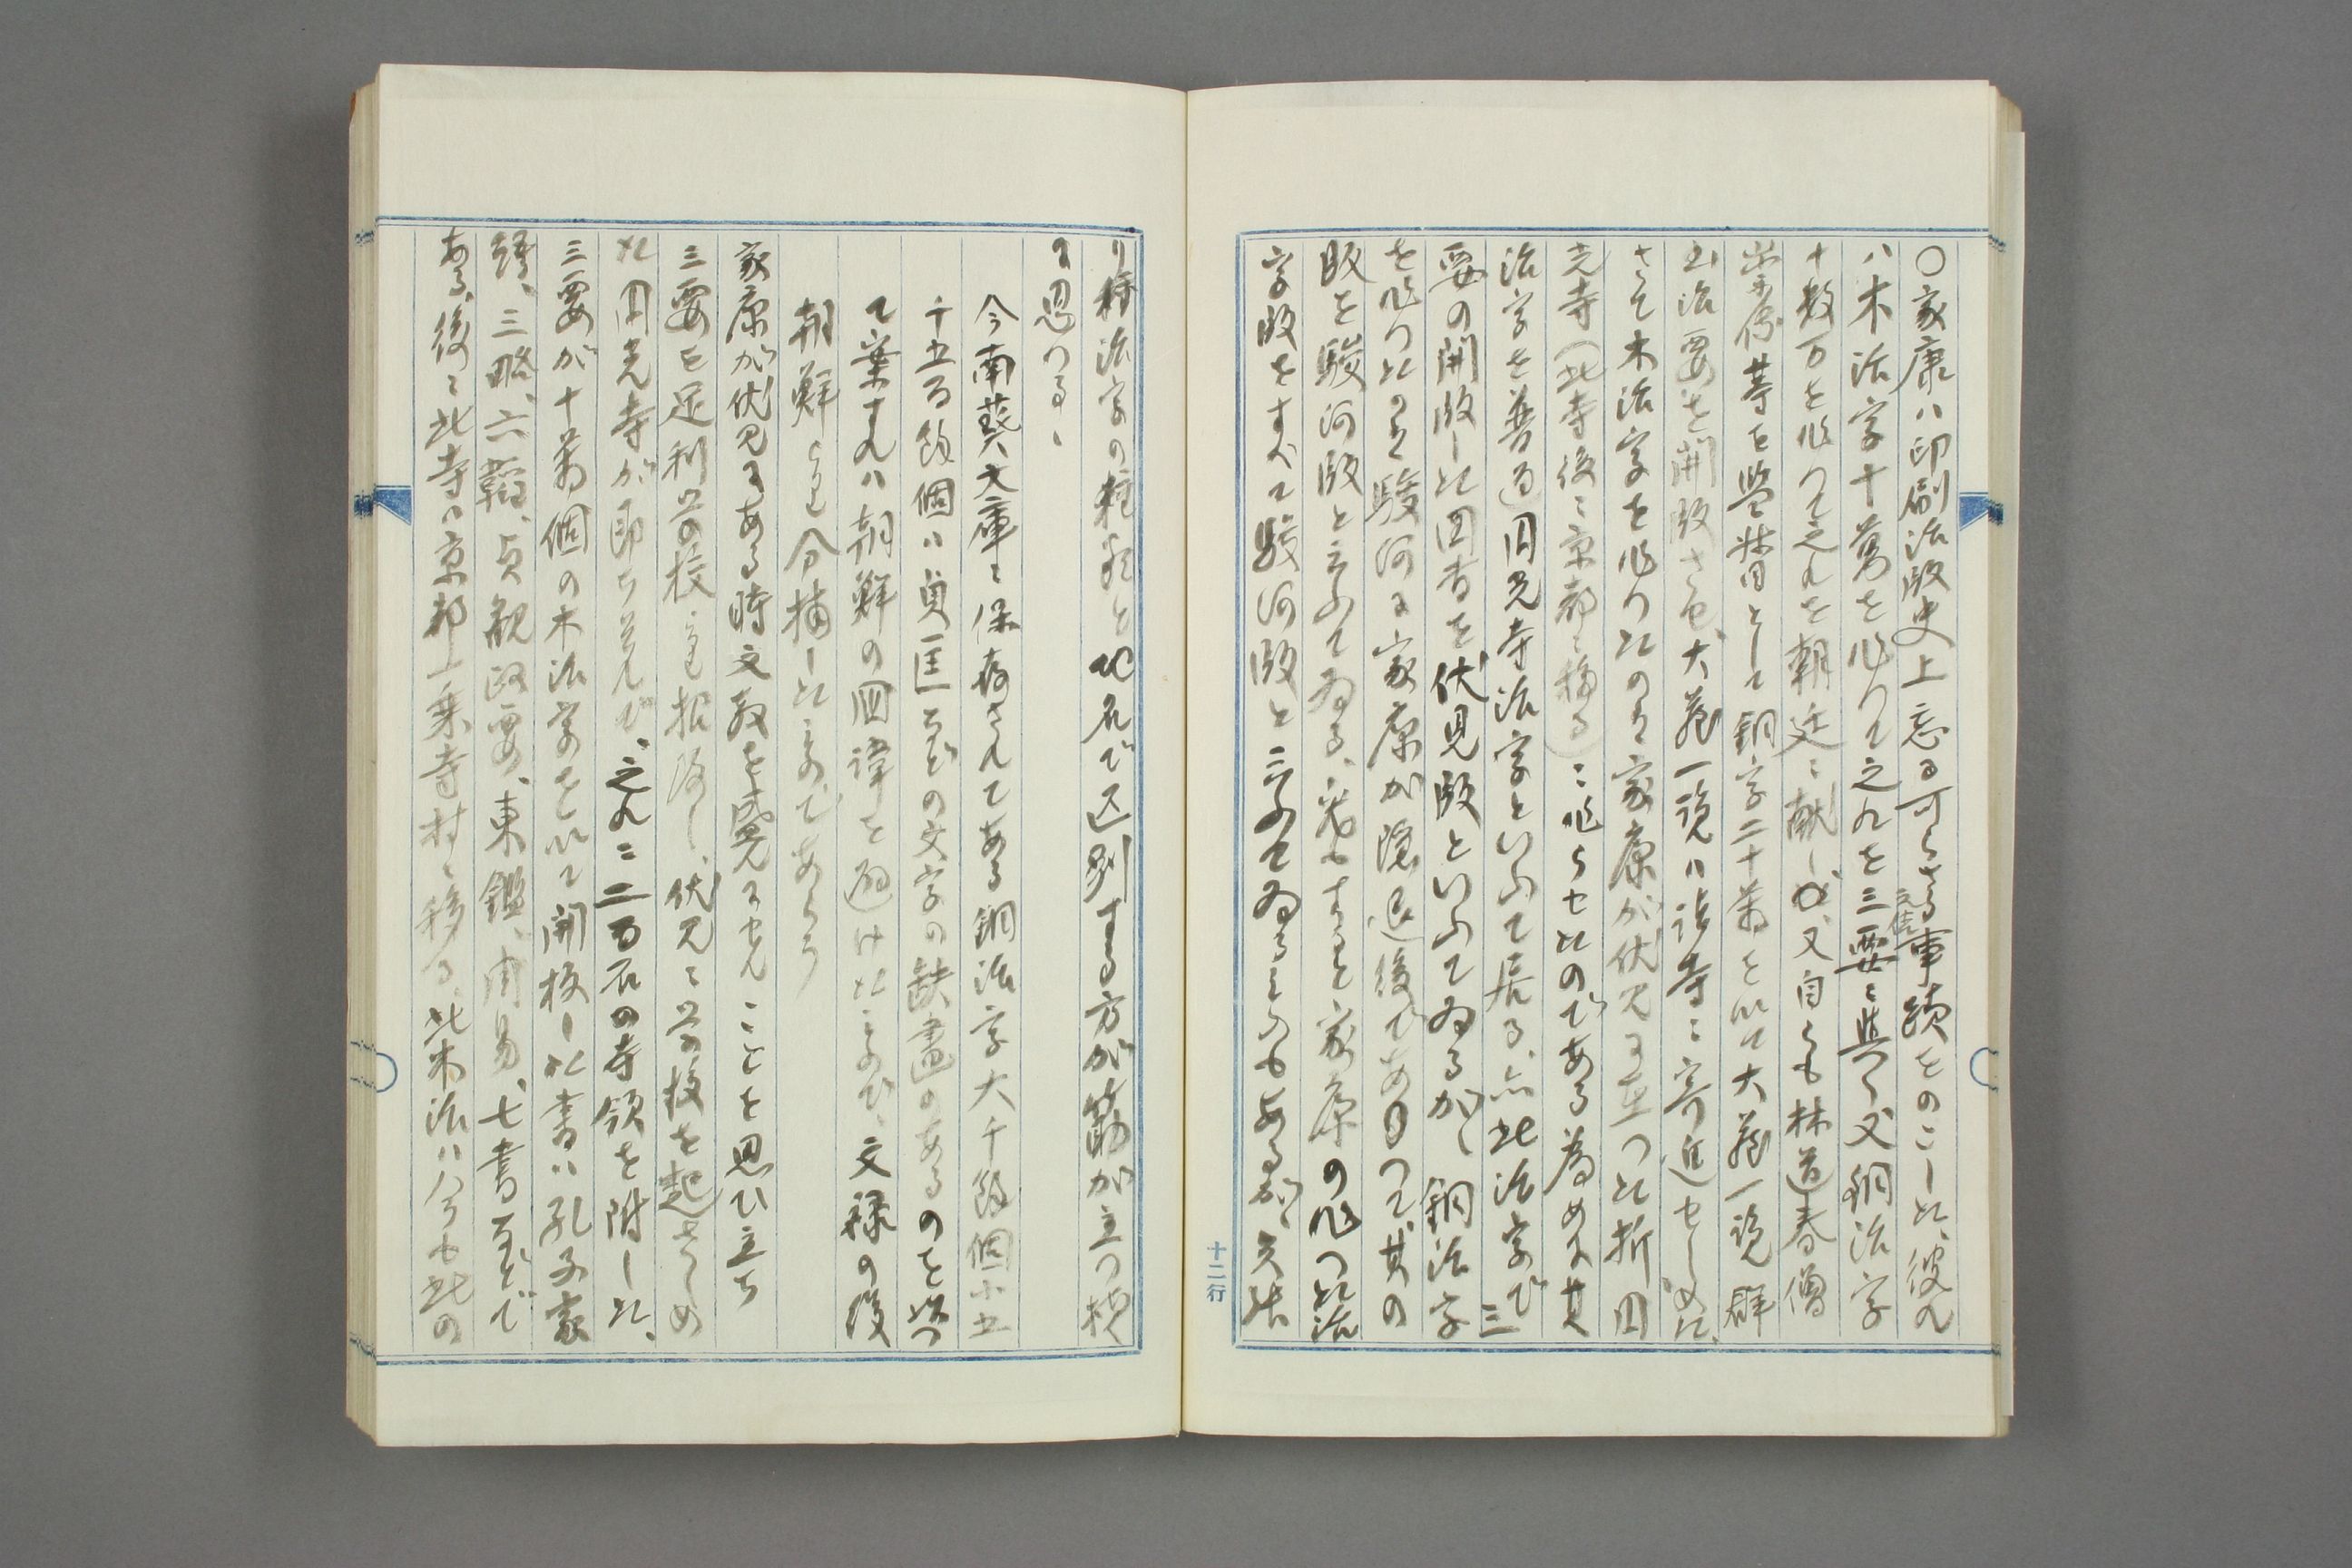 〇家康ハ印刷活版史上忘る可らさる事蹟をのこした、彼れ
ハ木活字十萬を作りて之れを三要
元佶
に與へ又銅活字
十数万を作つて之れを朝廷に献した、又自らも林道春僧
崇傳等を監督として銅字二十萬を以て大蔵一覧群
書治要を開版さした、大蔵一覧ハ諸寺に寄進せしめた、
さて木活字を作つたのハ家康が伏見に在つた折円
光寺(此寺後に京都に移る)に作らせたのである為めに其
活字を普通円光寺活字といふて居る、亦此活字で三
要の開版した図書を伏見版といふてゐるが、銅活字
を作つたのハ駿河に家康が隠退後であつて、其の
版を駿河版と云ふてゐる、家康の作つた活
字版をすべて駿河版と云ふてゐる
り特活字の種類と地名で区別する方が筋が立つ様
に思つる、
今南葵文庫に保存されてある銅活字大千餘個小五
千五百餘個ハ貞匡などの文字の缺畫のあるのを以つ
て案すれハ朝鮮の国諱を避けたもので、文禄の役
朝鮮より分捕したものであらう
家康が伏見にある時文教を盛んにせんことを思ひ立ち
三要を足利学校より招降し、伏見に学校を起さしめ
た円光寺が即ち是れで、之れに二百石の寺領を附した、
三要が十萬個の木活字を以て開板した書ハ孔子家
語、三略、六韜、貞観政要、東鑑、周易、七書などで
ある、後に此寺ハ京都一乗寺村に移る、此木活ハ今も此の
十二行